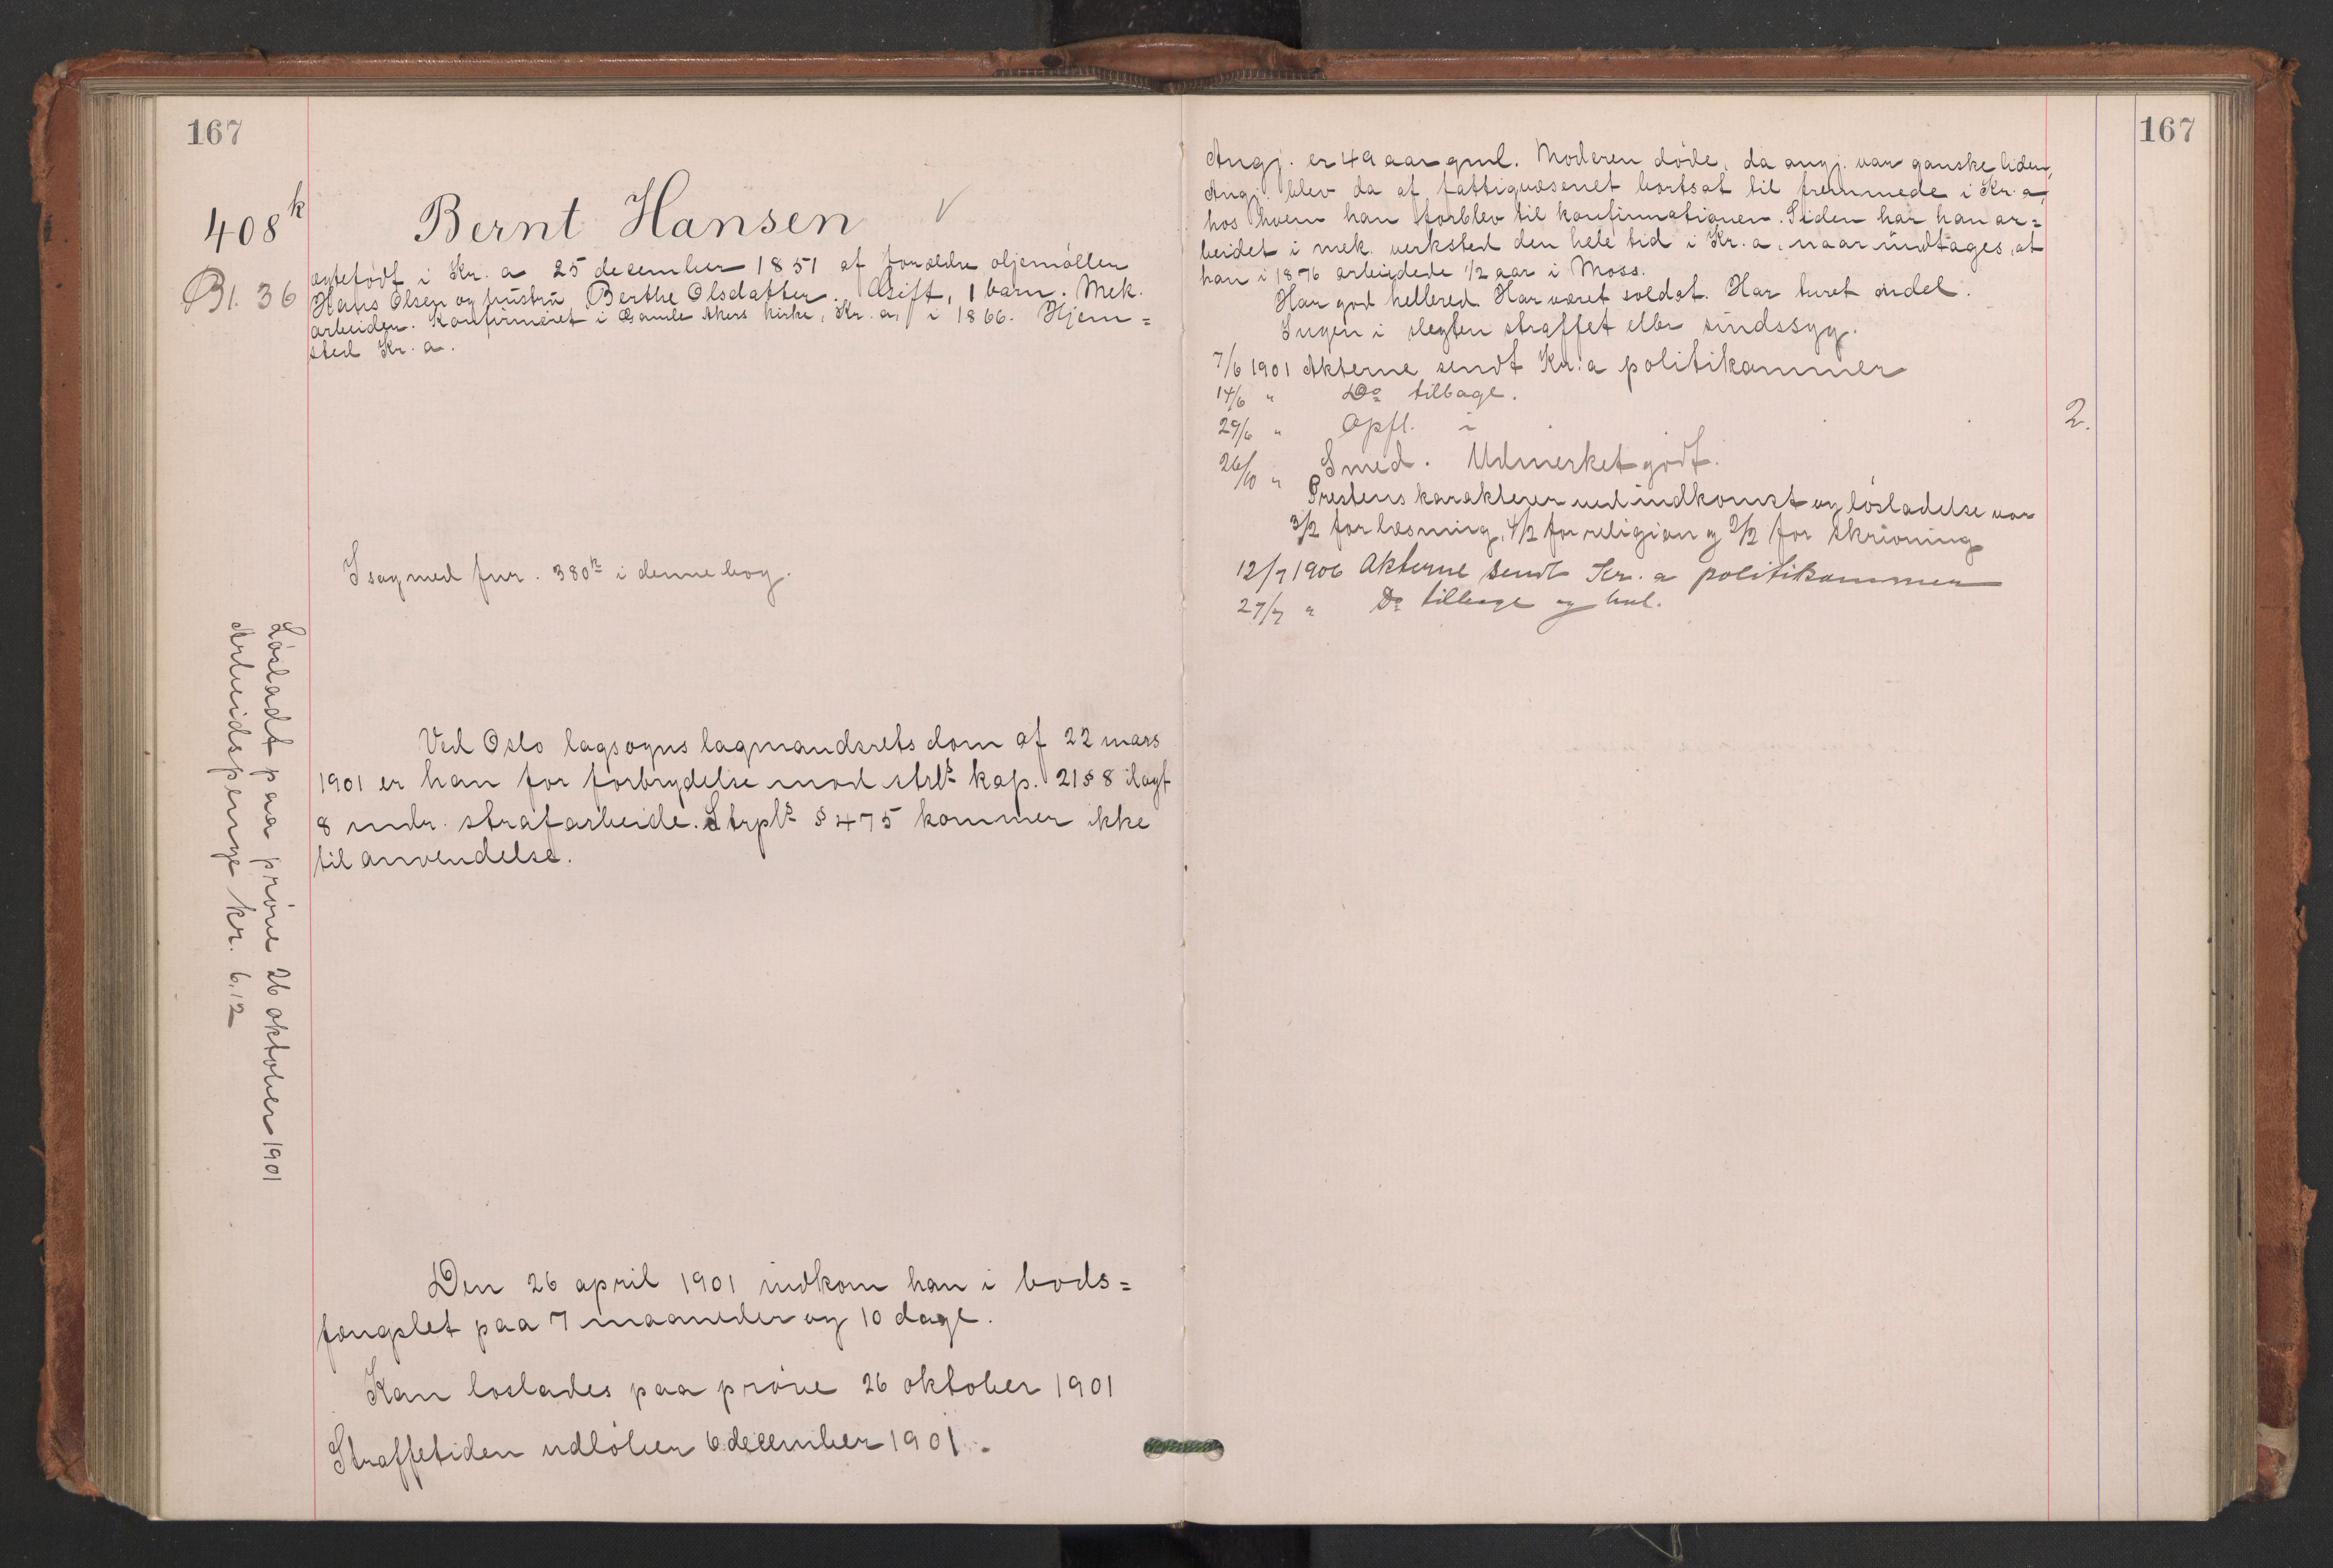 167
408k
Bl. 36
Bernt Hansen
ægtefødt i Kr.a 25 december 1851 af forældre oljemøller
Hans Olsen og hustru Berthe Olsdatter. Gift, 1 barn. Mek.
arbeider. Konfirmeret i Gamle Akers kirke, Kr.a, i 1866. Hjem=
sted Kr.a.
I sag med fnr. 380k i denne bog.
Ved Oslo lagsogns lagmandsrets dom af 22 mars
1901 er han for forbrydelse mod strls kap. 21 § 8 ilagt
8 mdr. strafarbeide. Strpls § 475 kommer ikke
til anvendelse.
Løsladt paa prøve 26 oktober 1901
Arbeidspenge kr. 6,12
Den 26 april 1901 indkom han i bods=
fængslet paa 7 maaneder og 10 dage.
Kan løslades paa prøve 26 oktober 1901
Straffetiden udløber 6 december 1901.
167
Angj. er 49 aar gml. Moderen døde, da angj. var ganske liden,
Angj. blev da af fattigvæsenet bortsat til fremmede i Kr.a,
hos hvem han forblev til konfirmationen. Siden har han ar=
beidet i mek. verksted den hele tid i Kr.a, naar undtages, at
han i 1876 arbeidede 1/2 aar i Moss.
Har god helbred. Har været soldat. Har turet endel.
Ingen i slegten straffet eller sindssyg.
7/6 1901 Akterne sendt Kr.a politikammer
14/6 " Do tilbage.
29/6 " Opfl. i
2.
26/10 " Smed. Udmerket godt.
Prestens karakterer ved indkomst og løsladelse var
3/2 for læsning, 4/2 for religion og 2/2 for skrivning
12/7 1906 Akterne sendt Kr.a politikammer
27/7 " Do tilbage og